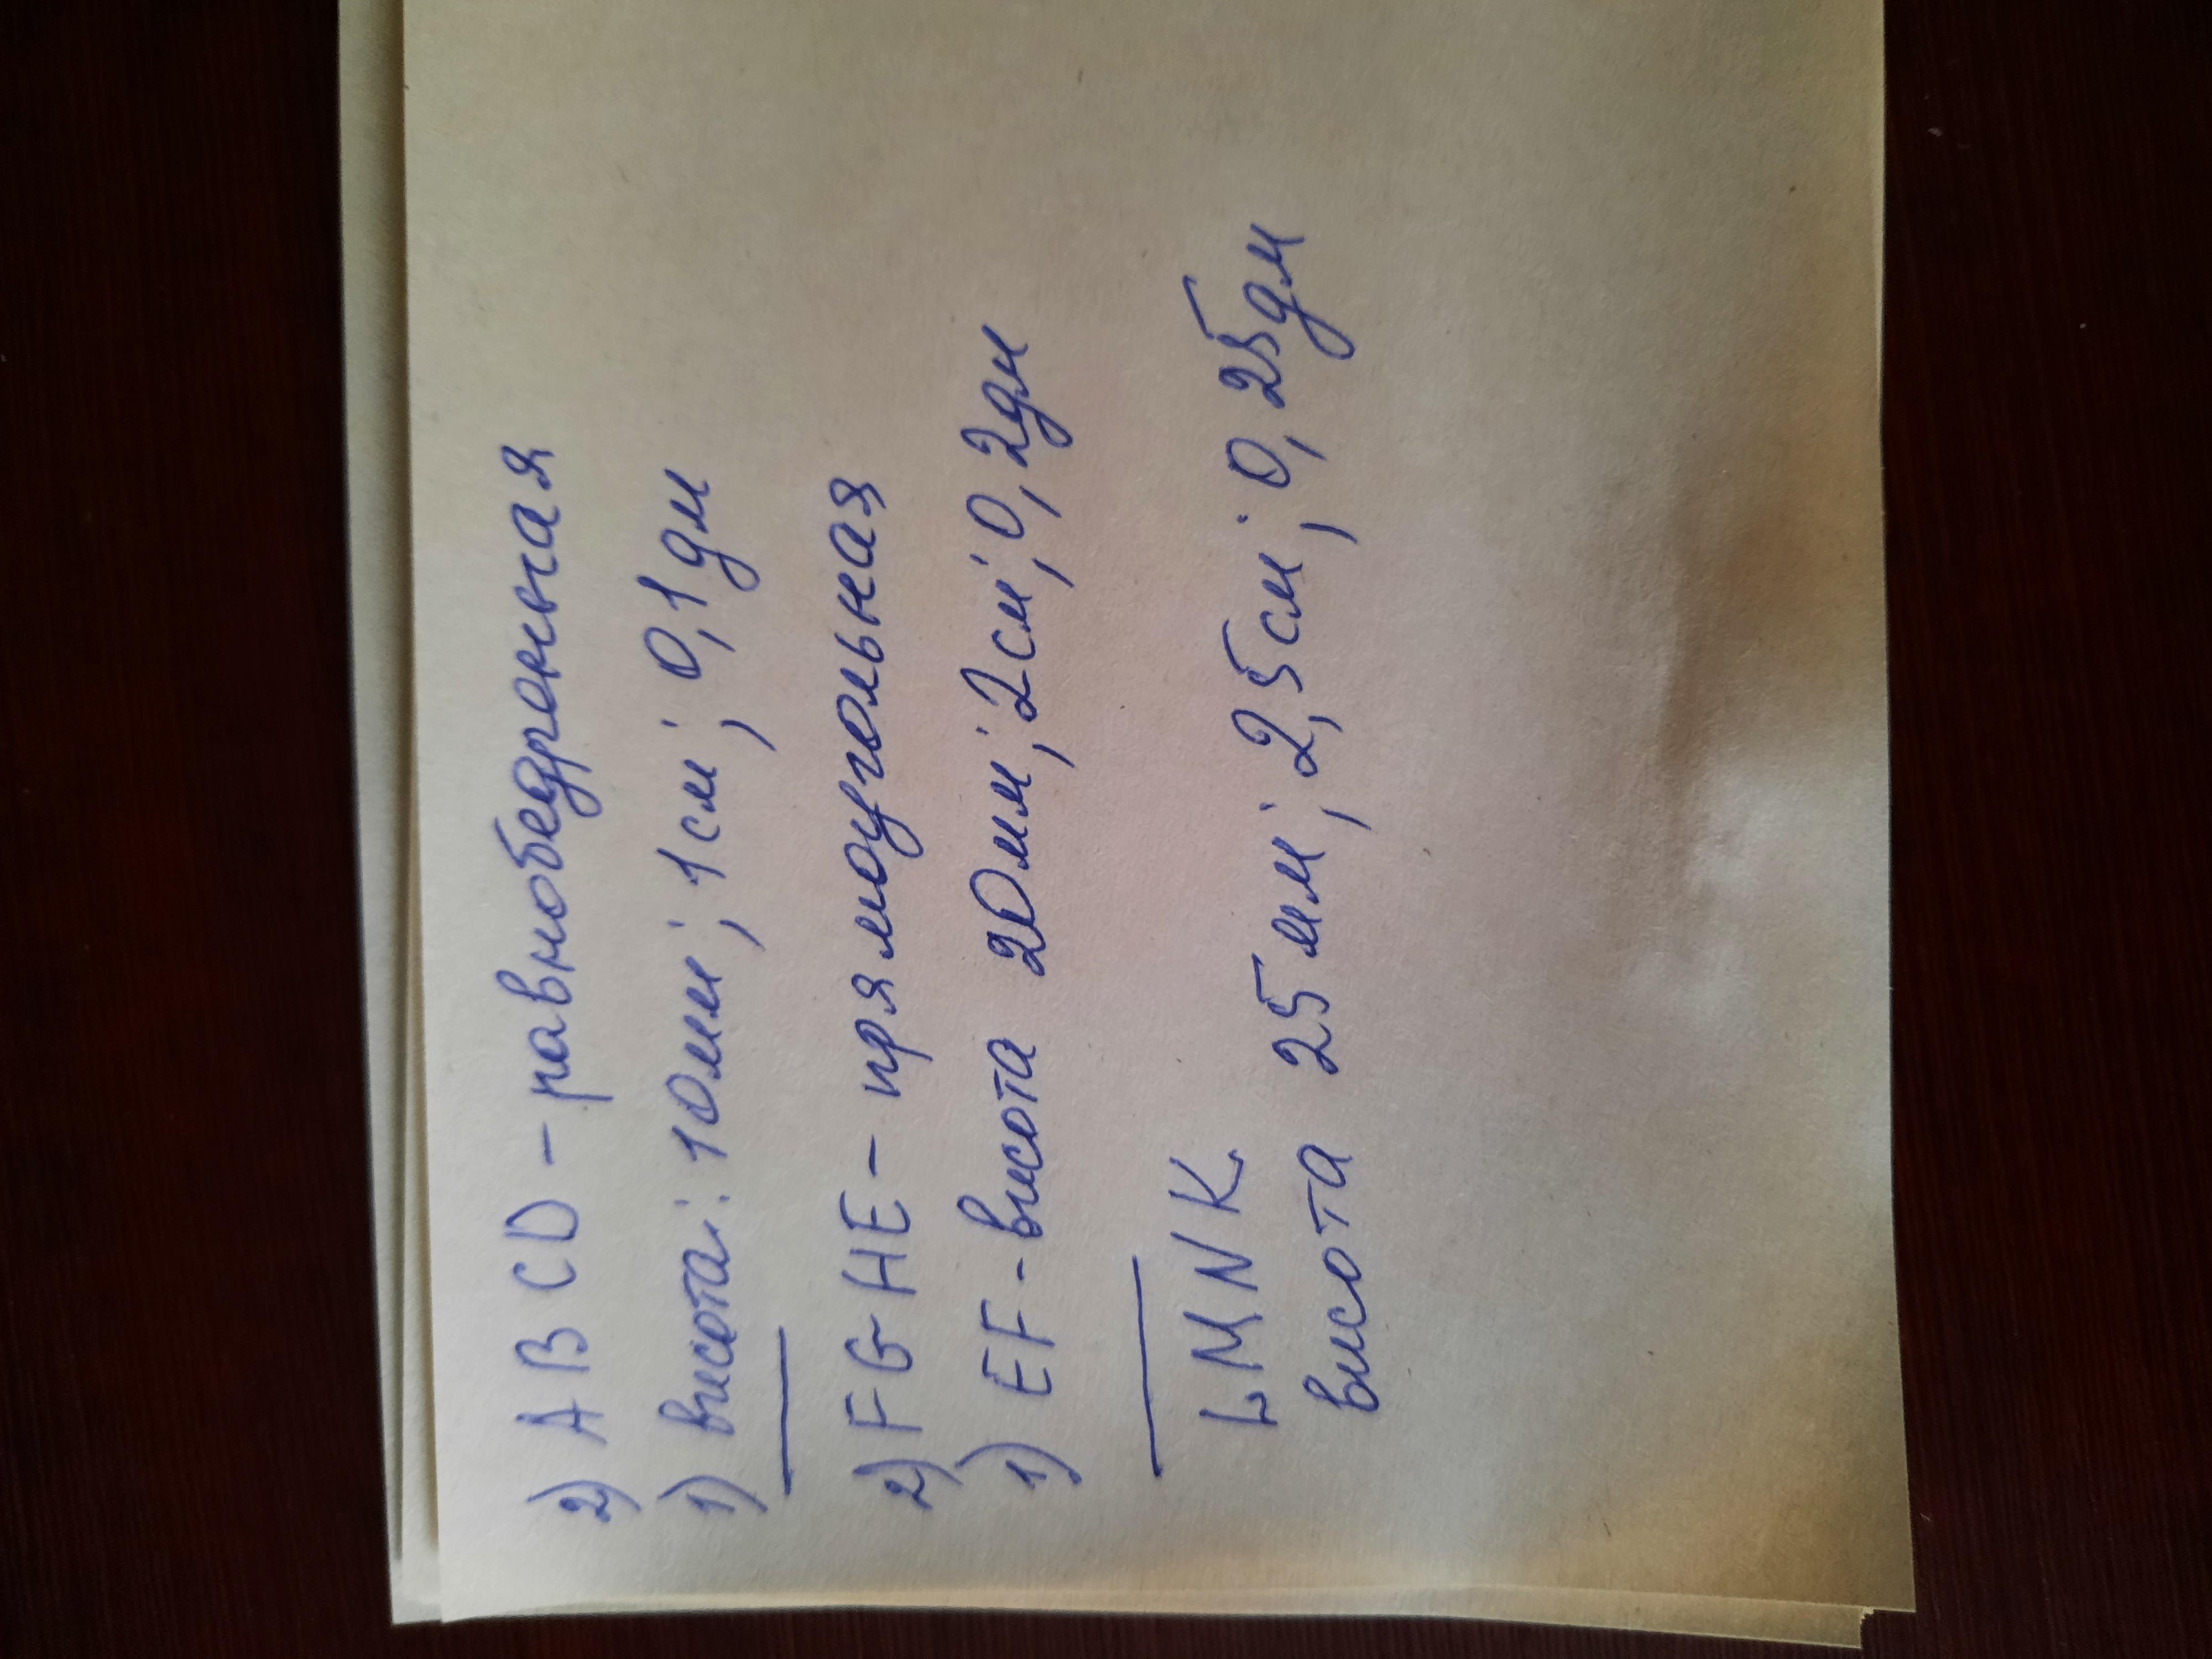 2) ABCD - равнобедренная
1) высота: 10мм; 1см; 0,1дм
2) FGHE - прямоугольная
1) EF - высота 20мм; 2см; 0,2дм
LMNK
высота 25мм; 2,5см; 0,25дм